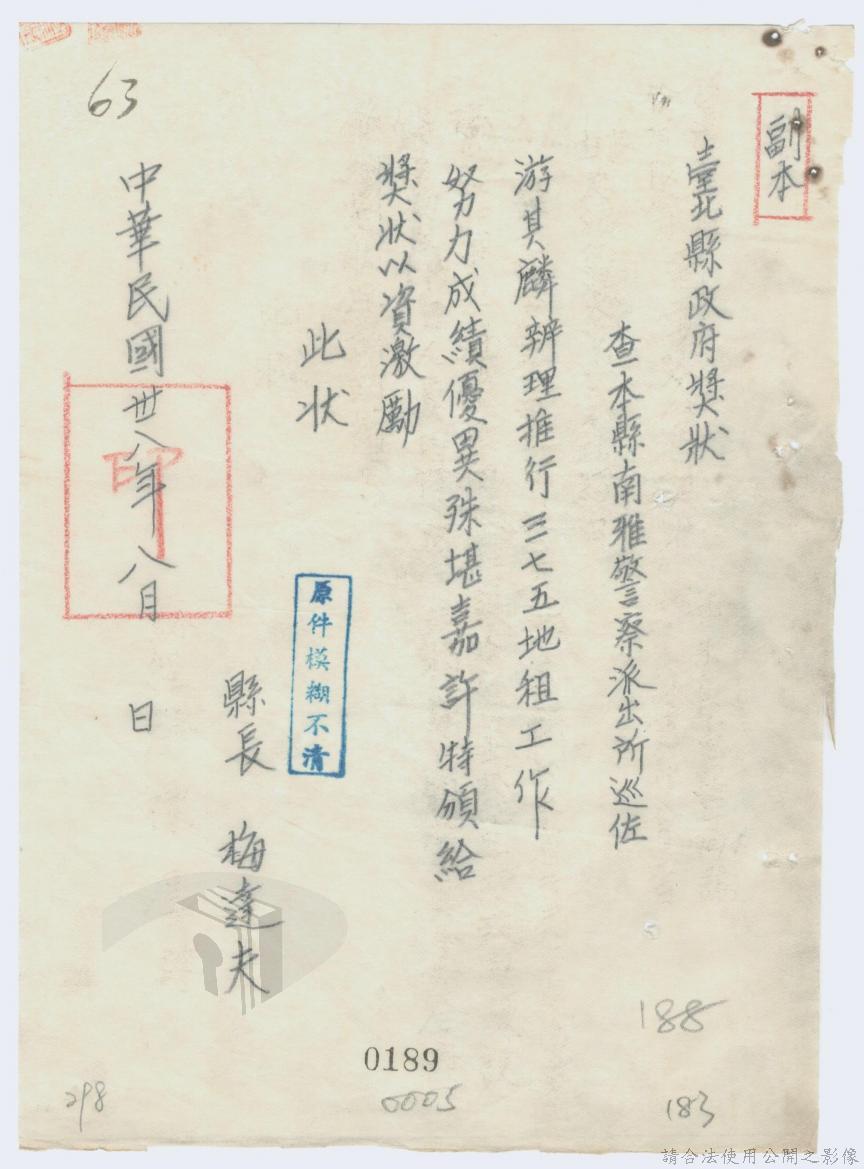 副本
臺北縣政府獎狀
查本縣南雅警察派出所巡佐
游其麟辦理推行三七五地租工作
努力成績優異殊堪嘉許特頒給
獎狀以資激勵
此狀
縣長 梅達夫
中華民國卅八年八月 日
印
原件模糊不清
63
188
0189
298
0005
183
請合法使用公開之影像